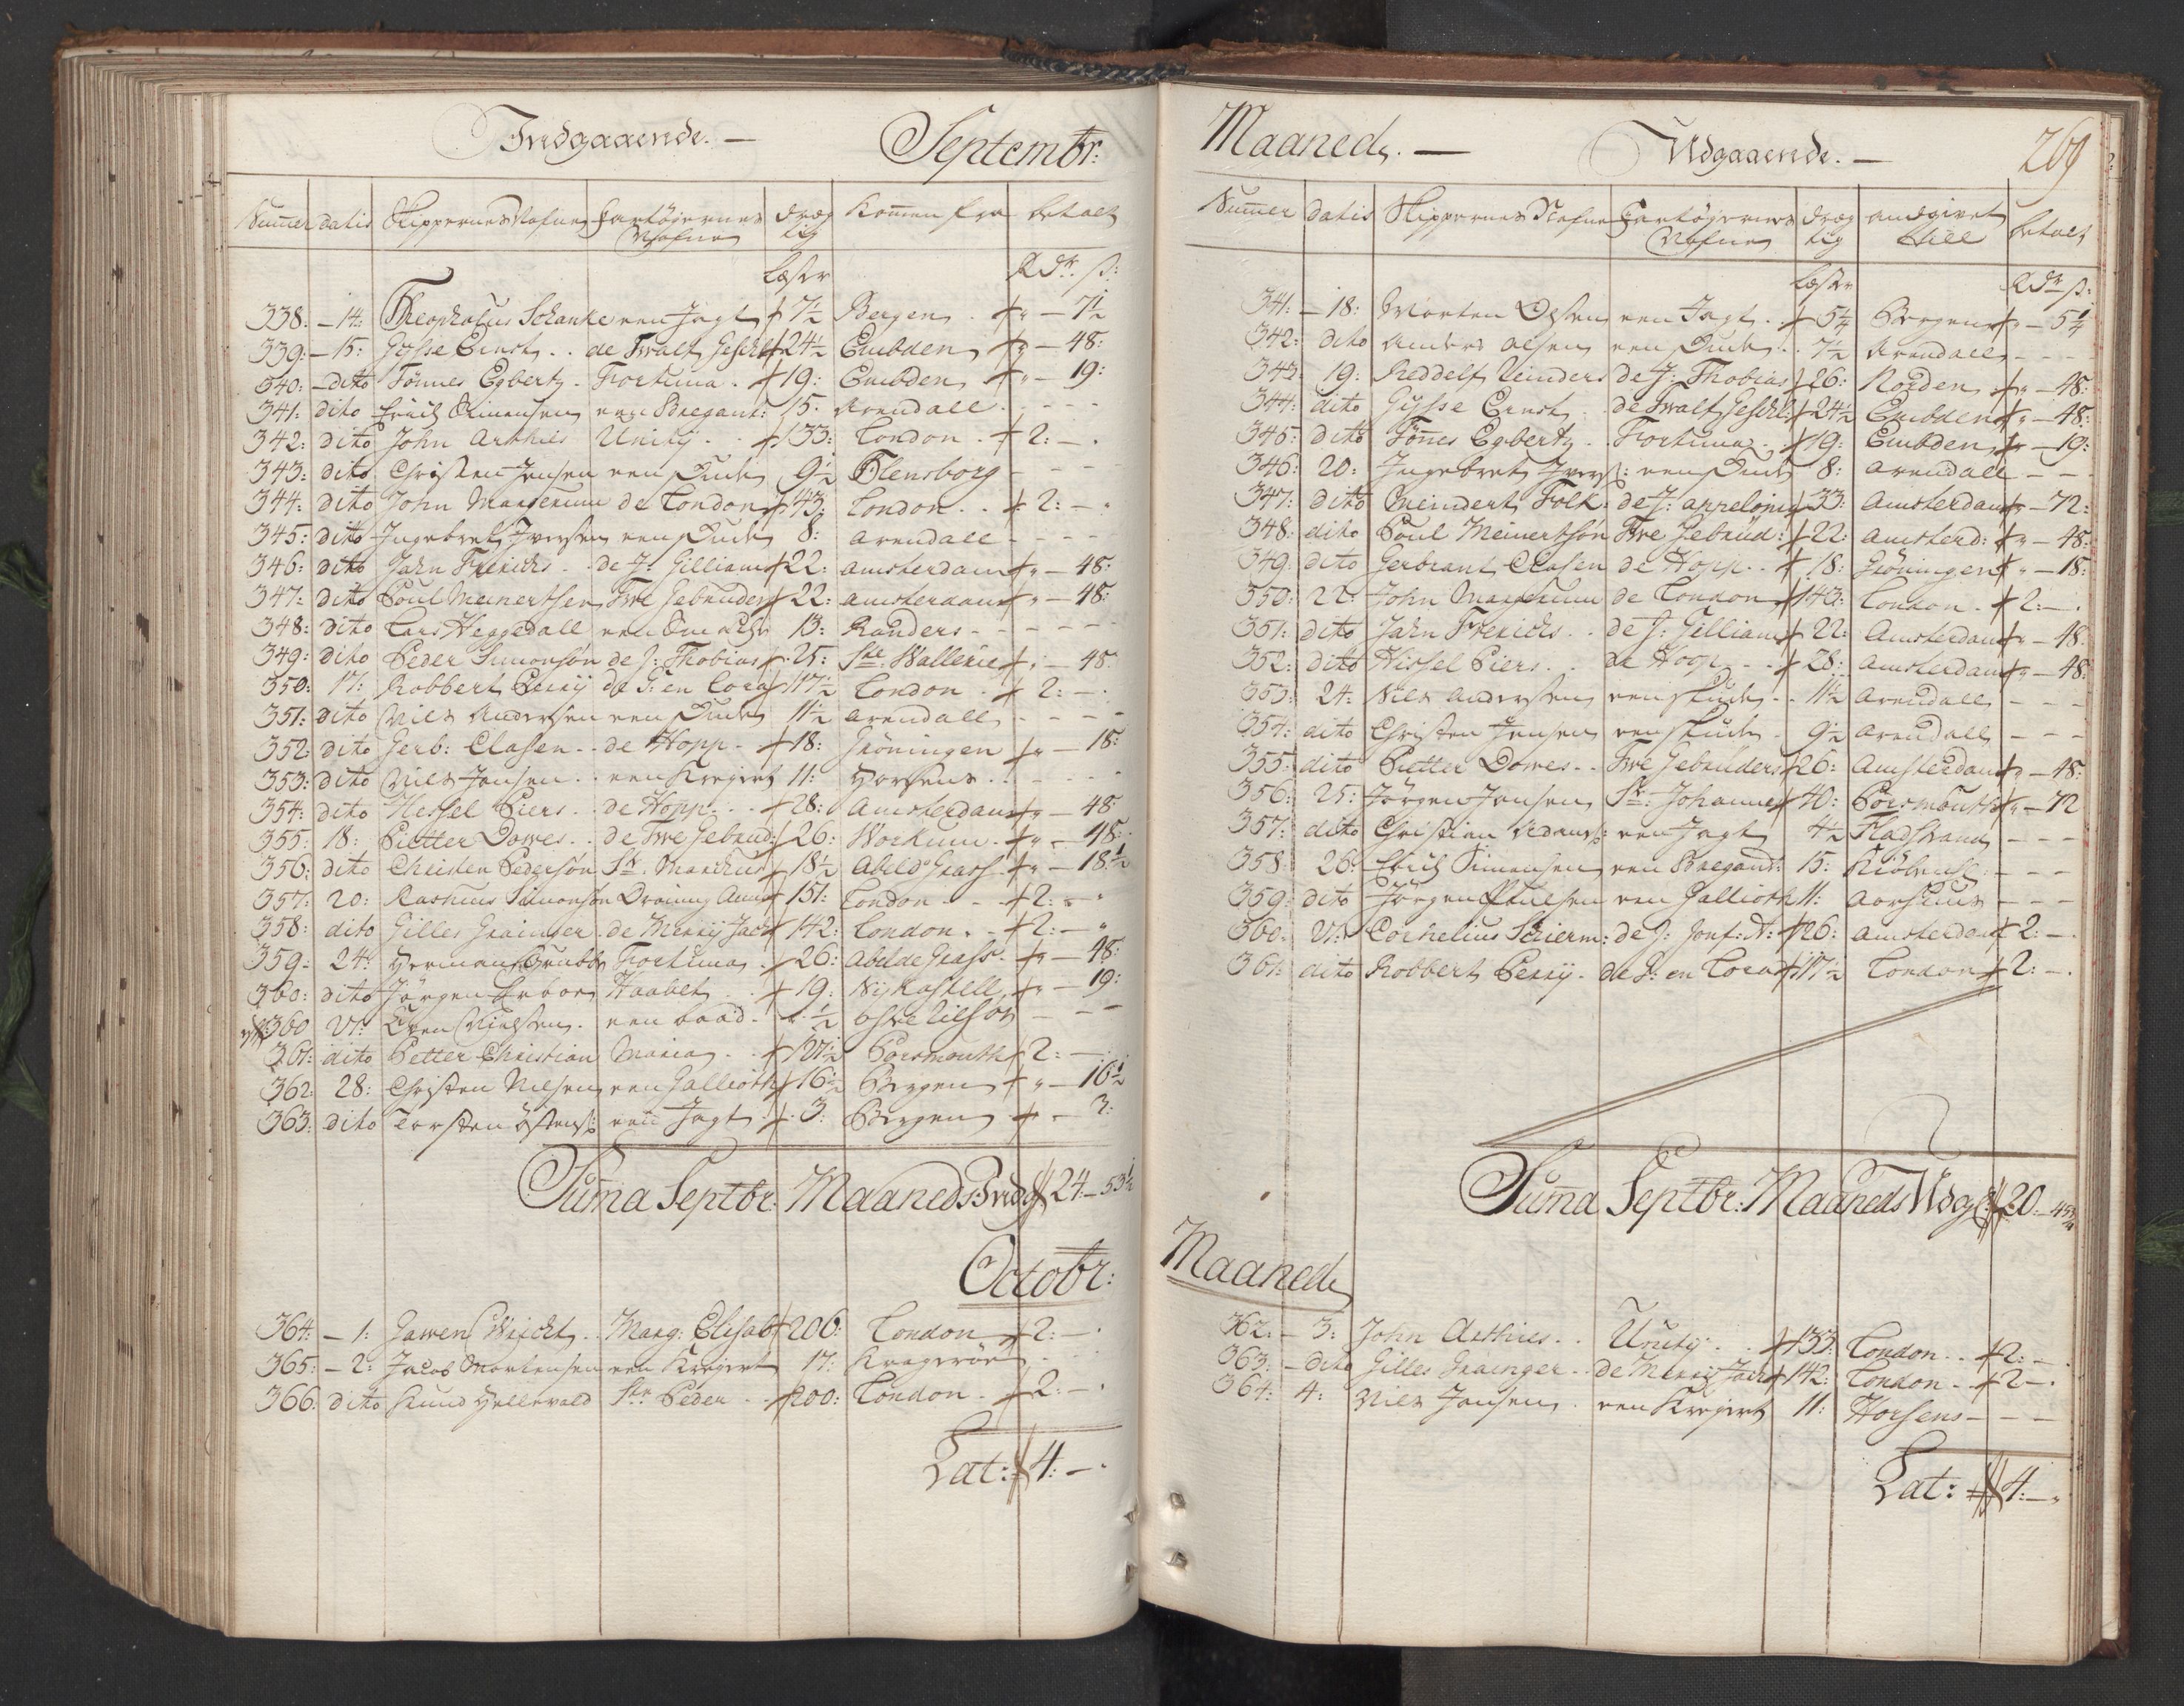 Indgaaende. —
Septembr:
Numer datis Skippernes Nafne Fartøjernes Nafne dræg tig Komen fra betalt
Læster Rdr. ß:
338: — 14: Theophalus Schanke een Jagt 7½ Bergen „ — 7½
339: — 15: Gysse Ernst .. de Twalf Geschl 24½ Embden „ — 48:
340: — dito Tönnes Egbertz . Fortuna . 19: Embden „ — 19:
341: dito Erich Simensen een Bregant: 15. Arendall . - - -
342: dito John Arthies Unity . 133: London . 2: — .
343: dito Christen Jensen een Skude 9½ Flensborg - - -
344: dito John Margerum de London 143: London .. 2: — .
345: dito Ingebret Iversen een Skude 8: Arendall - - -
346: dito Jahn Frerichs .. de J: Gilliam 22: Amsterdam „ — 48:
347: dito Poul Meinertsen Twe Gebruders 22: Amsterdam „ — 48:
348: dito Lars Heggedall een 13: Randers - - -
349: dito Peder Simonsøn de J: Thobias 25: Ste. Wallerie „ — 48.
350: 17: Robbert Perry de G: en Cora 117½ London . 2: — .
351: dito Niels Andersen een Skude 11½ Arendall - - -
352: dito Gerb: Clasen .. de Hopp . 18: Gröningen „ — 18:
353: dito Niels Jansen .. een Krejert 11: Horsens .. - - -
354: dito Hessel Piers .. de Hopp .. 28: Amsterdam „ — 48:
355: 18: Pietter Dowes .. de Twe Gebrud: 26: Workum . „ — 48:
356: dito Christen Pedersøn St. Marchus 18½ Abeld Grass „ — 18½
357: 20: Rasmus Simonsøn Droning Anna 151: London .. 2: — .
358: dito Gilles Grainger . de Merry Jack 142: London .. 2: — „
359: 24: Herman Grubbe Fortuna . 26: Abelde Grass . „ — 48:
360: dito Jörgen Haabet . 19: Nykastell „ — 19:
360 27: Even Nielsen . een baad . ½ - - -
361: dito Petter Christian Maria . 127½ Porsmouth 2: —
362: 28: Christen Nilsen een Gallioth 16½ Bergen „ — 16½
363: dito Torsten Östens: een Jagt 3: Bergen . — 3:
Suma Septbr: Maaneds Indg: 24 — 53½
Octobr:
364: — 1: Jawen Wischt . Marg: Elisab 206: London 2: — .
365: — 2: Jacob Mortensen een Krejert 17: Kragerøe . - -
366: dito Knud Hellevold Str. Peder .. 200: London . 2: — .
Lat: 4: — .
Maaned. —
Udgaaende. —
269
Numer Datis Skippernes Nafne Fartøjernes Nafne Dræg tig andgivet till betalt
Læster Rdr ß:
341: — 18: Morten Olsen een Jagt . 5¼ Bergen „ — 5¼
342: dito Anders Olsen een Skude . 7½ Arendall - - -
343: 19: Reddelf Reinders de J: Thobias 26: Norden „ — 48:
344: dito Gysse Ernst . de Twalf Geschl 24½ Embden „ — 48:
345: dito Tönnes Egbertz . Fortuna . 19: Embden „ — 19:
346: 20: Ingebret Ivers: een Skude 8: Arendall - -
347: dito Meindert Folk: de J: Appelönia 33: Amsterdam „ — 72:
348: dito Poul Meinertsøn Twe Gebrüd: 22: Amsterd: „ — 48:
349: dito Gerbrant Clasen de Hopp .. 18: Gröningen „ — 18:
350: 22: John Margerum de London 143: London . 2: — .
351: dito Jahn Frerichs .. de J: Gilliam 22: Amsterdam „ — 48.
352: dito Hissel Piers .. de Hoop .. 28: Amsterdam „ — 48:
353: 24: Niels Andersen een Skude .. 11½ Arendall - - -
354: dito Christen Jensen een Skude . 9½ Arendall - - -
355: dito Pietter Dowes .. Twe Gebruders 26: Amsterdam „ — 48:
356: 25: Jörgen Jansen St: Johannes 40: Porsmouth „ — 72
357: dito Christian Adams: een Jagt 4½ Fladstrand - - -
358: 26: Erich Simensen een Bregand: 15: Kiøbenh: - - -
359: dito Jörgen Poulsen een Gallioth 11: Aarhuus - - -
360: 27: Cornelius Schierm: de J: Jonf: A: 126: Amsterdam 2: — .
361: dito Robbert Perry . de G: en Cora 117½ London 2: — .
Suma Septbr: Maaneds Udg: 20: — 45¾
Maaned
362: — 3: John Arthies .. Unity . . 133: London .. 2: — .
363: — dito Gilles Grainger .. de Merry Jack 142: London . 2 — .
364: 4: Niels Jansen . een Krejert 11: Horsens - - -
Lat: 4: — „